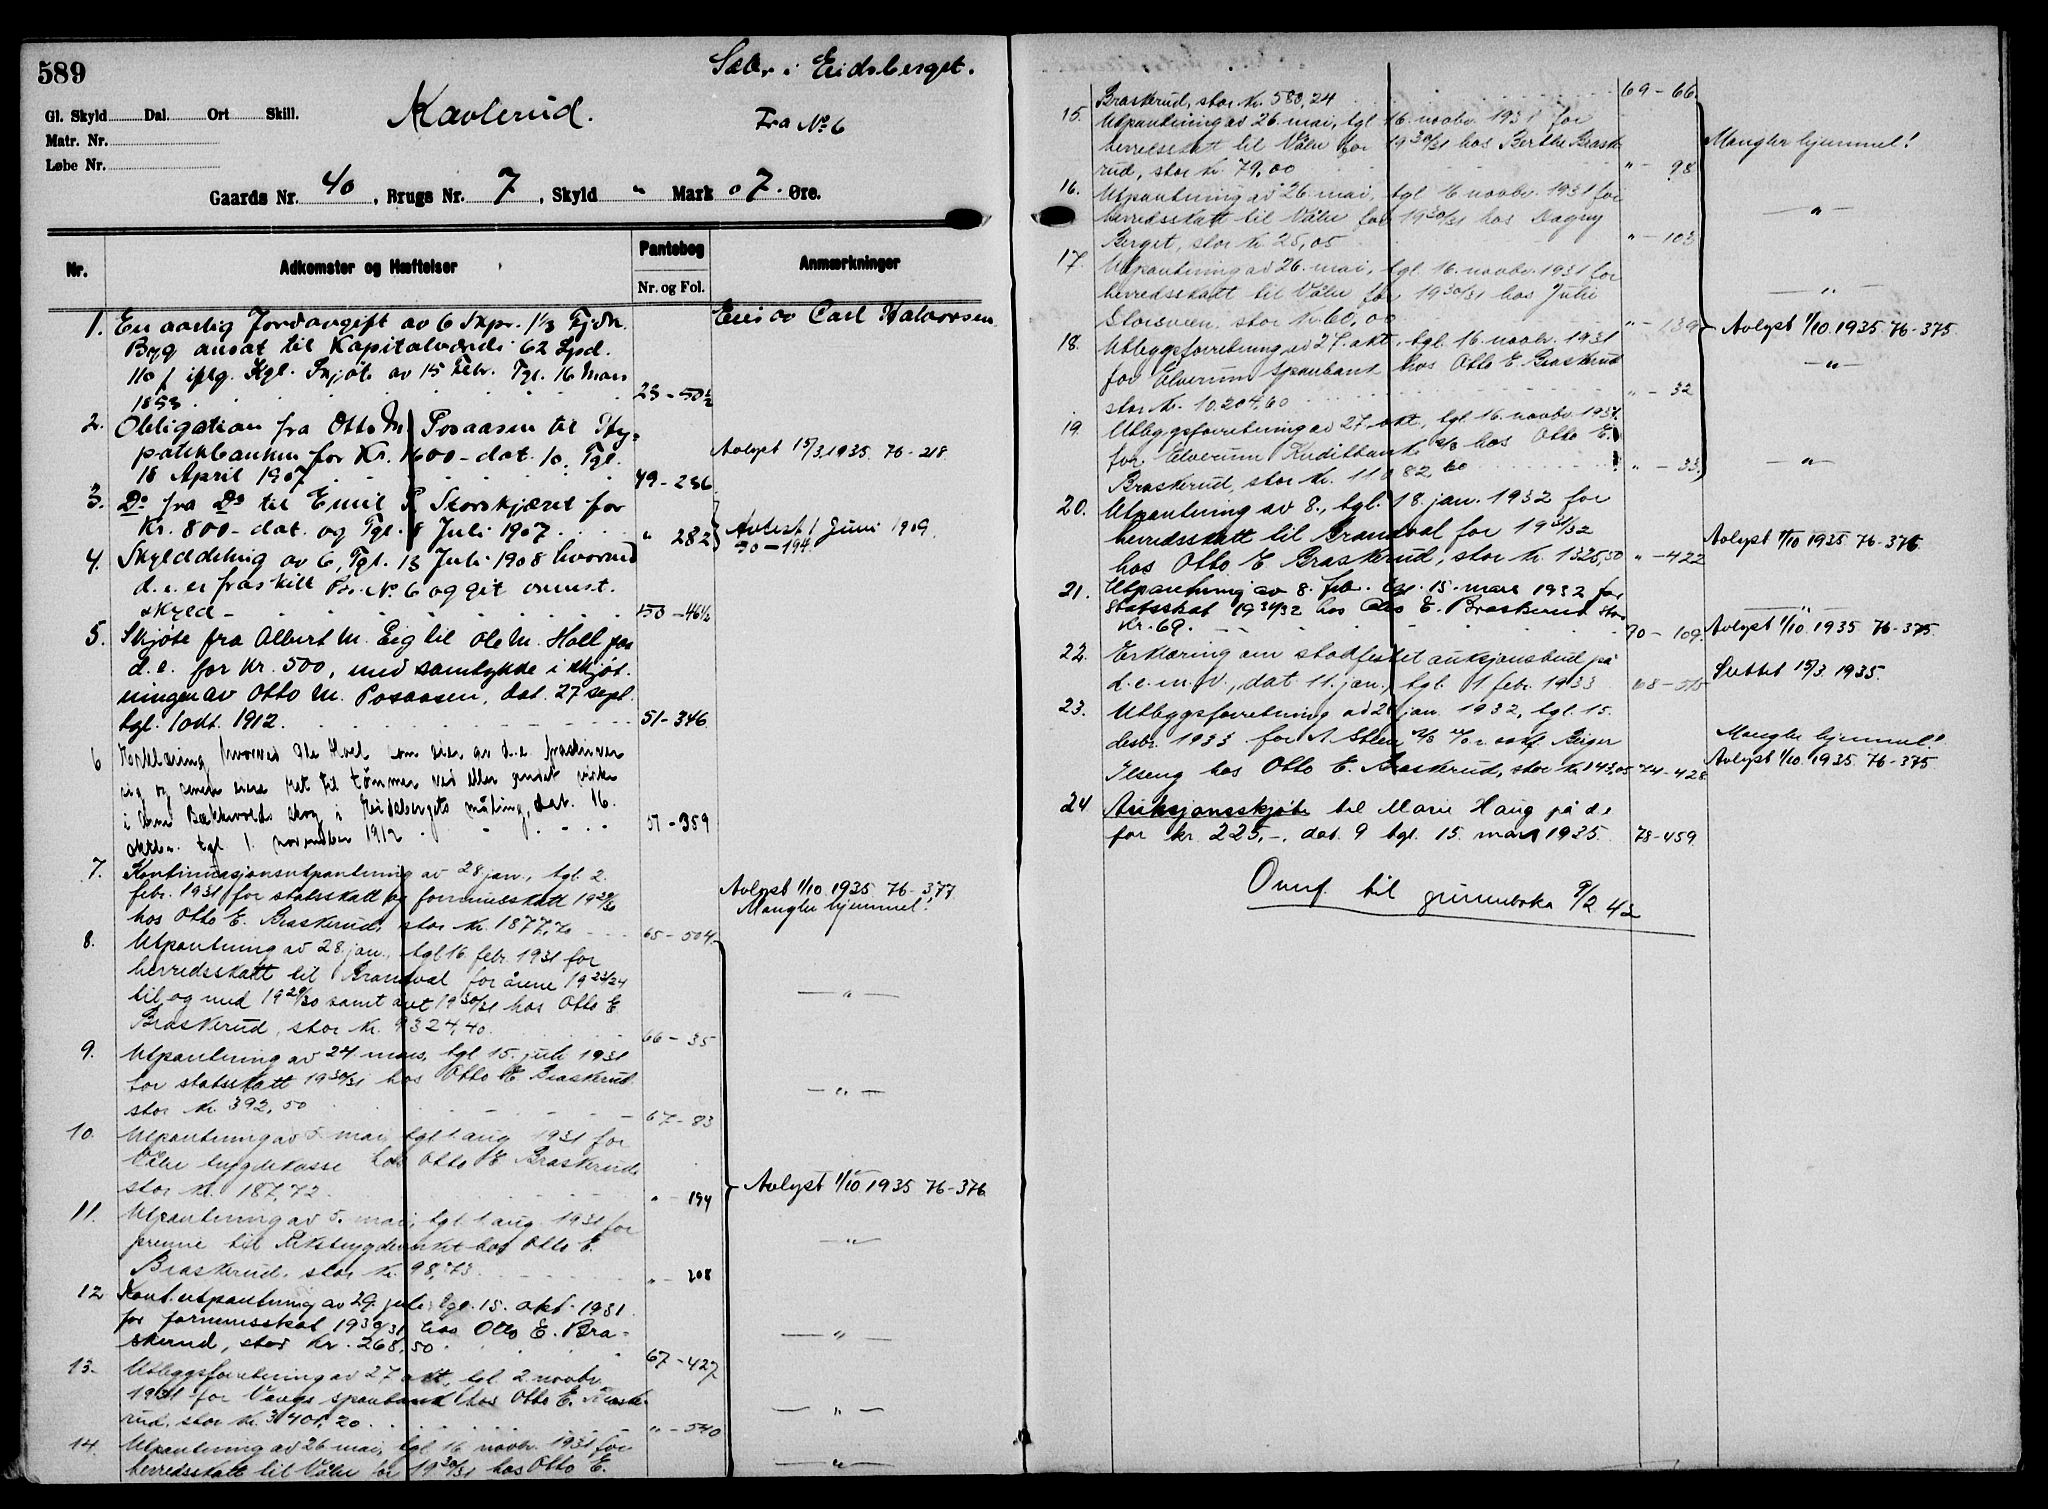 589
Sæter i Eidsberget.
Gl. Skyld Dal. Ort Skill.
Kavlerud.
Fra No 6
Matr. Nr.
Løbe Nr.
Gaards Nr. 40, Brugs Nr. 7, Skyld " Mark 07 Øre.
Nr. Adkomster og Hæftelser Pantebog Nr. og Fol. Anmærkninger
1. En aarlig Jordavgift av 6 Skpr. 1⅓ Fjdk. Eies av Carl Halvorsen
Byg ansat til Kapitalværdi 62 Spd.
110 f iflg. Kgl. Skjøte av 15 Febr. Tgl. 16 Mars
1853 23-50½
2. Obligation fra Otto M Posaasen til Hy-
potekbanken for Kr. 1600- dat. 10, Tgl. Avlyst 15/3 1935 76-218
18 April 1907 49-236
3. Do fra Do til Emil P. Storskjæret for
Kr. 800- dat. og Tgl. 8 Juli 1907 " 282 Avlest 1 Juni 1909
50-194
4. Skylddeling av 6, Tgl. 13 Juli 1908 hvorved
d.e. er fraskilt Br. No 6 og git ovenst.
skyld - 150-46½
5. Skjøte fra Albert M. Eig til Ole M. Holl paa
d.e. for Kr. 500, med samtykke i skjøt-
ningen av Otto M. Posaasen, dat. 27 sept.
tgl. 1 okt. 1912. 51-346
6 Erklæring hvorved Ole Holl som eier av d.e. fraskriver
sig og senere eiere ret til tømmer ved eller andet virke
i Bækkevolds skog i Eidsbergets måling, dat. 16.
oktbr. tgl 1. november 1912 51-359
7. Kontinuasjonsutpantning av 28 jan., tgl. 2.
febr. 1931 for statsskatt og formuesskatt 1929/30 Avlyst 1/10 1935 76-377
hos Otto E. Braskerud, stor kr. 1877,70 65-504 Mangler hjemmel.
8. Utpantning av 28 jan., tgl 16 febr. 1931 for
herredsskatt til Brandval for årene 1923/24
til og med 1929/30 samt 1930/31 hos Otto E. — " —
Braskerud, stor kr. 9324,40. 66-35
9. Utpantning av 24 mars, tgl. 15. juli 1931
for statsskatt 1930/31 hos Otto E Braskerud — " —
stor kr. 392,50 67-83
10. Utpantning av 5 mai, tgl 1 aug 1931 for
Våler trygdekasse hos Otto E Braskerud
stor kr. 187,72. " - 194 Avlyst 1/10 1935 76-376
11. Utpantning av 5. mai, tgl. 1 aug. 1931 for
premie til Rikstrygdeverket hos Otto E. — " —
Braskerud. stor kr. 98,73 " - 208
12 Kont. utpantning av 29. juli, tgl. 15. okt. 1931
for formuesskat 1930/31 hos Otto E. Bra- — " —
skerud, stor kr. 268,50 67-427
13. Utleggsforretning av 27 okt, tgl. 2 novbr.
1931 for Vangs sparebank hos Otto E. Brask- — " —
rud, stor kr. 3401,20 " - 540
14. Utpantning av 26 mai, tgl 16 novbr. 1931 for
herredsskatt til Våler for 1930/31 hos Otto E. — " —
Braskerud, stor kr. 580,24 69-66
15. Utpantning av 26. mai, tgl 16. novbr. 1931 for
herredsskatt til Våler for 1930/31 hos Berthe Brask- Mangler hjemmel!
rud, stor kr. 79,00 " - 98
16. Utpantning av 26 mai, tgl 16 novbr. 1931 for
herredsskatt til Våler for 1930/31 hos Dagny — " —
Berget, stor kr. 25,05 " - 103
17. Utpantning av 26. mai, tgl. 16. novbr. 1931 for
herredsskatt til Våler for 1930/31 hos Julie — " —
stor kr. 60,00 " - 139 Avlyst 1/10 1935 76-375
18. Utleggsforretning av 27. okt., tgl. 16. novbr. 1931
for Elverum sparebank hos Otto E Braskerud — " —
stor kr. 10.204,60 " - 32
19. Utleggsforretning av 27. okt, tgl. 16. novbr. 1931
for Elverum Kreditbank A/S hos Otto E.
Braskerud, stor kr. 11082,60 " - 33 — " —
20. Utpantning av 8., tgl. 18. jan. 1932 for
herredsskatt til Brandval for 1931/32 Avlyst 1/10 1935 76-376
hos Otto E Braskerud, stor kr. 1325,50 " - 422
21. Utpantning av 8. feb. tgl. 15. mars 1932 for
Statsskat 1931/32 hos Otto E. Braskerud stor — " —
kr. 69. 70-109. Avlyst 1/10 1935 76-375
22. Erklæring om stadfestet auksjonsbud på Slettet 15/3 1935.
d.e.m.v., dat 11. jan., tgl. 1 febr. 1933 68-515
23. Utleggsforretning av 2 jan. 1932, tgl. 15. Mangler hjemmel!
desbr. 1933 for A Steen A/S v/o.r. sakf. Birger Avlyst 1/10 1935 76-375
Ilseng hos Otto E. Braskerud, stor kr 143,05 74-428
24 Auksjonsskjøte til Marie Haug på d.e
for kr. 225,-, dat. 9 tgl. 15. mars 1935. 78-459
Overf. til grunnboka 9/2 42